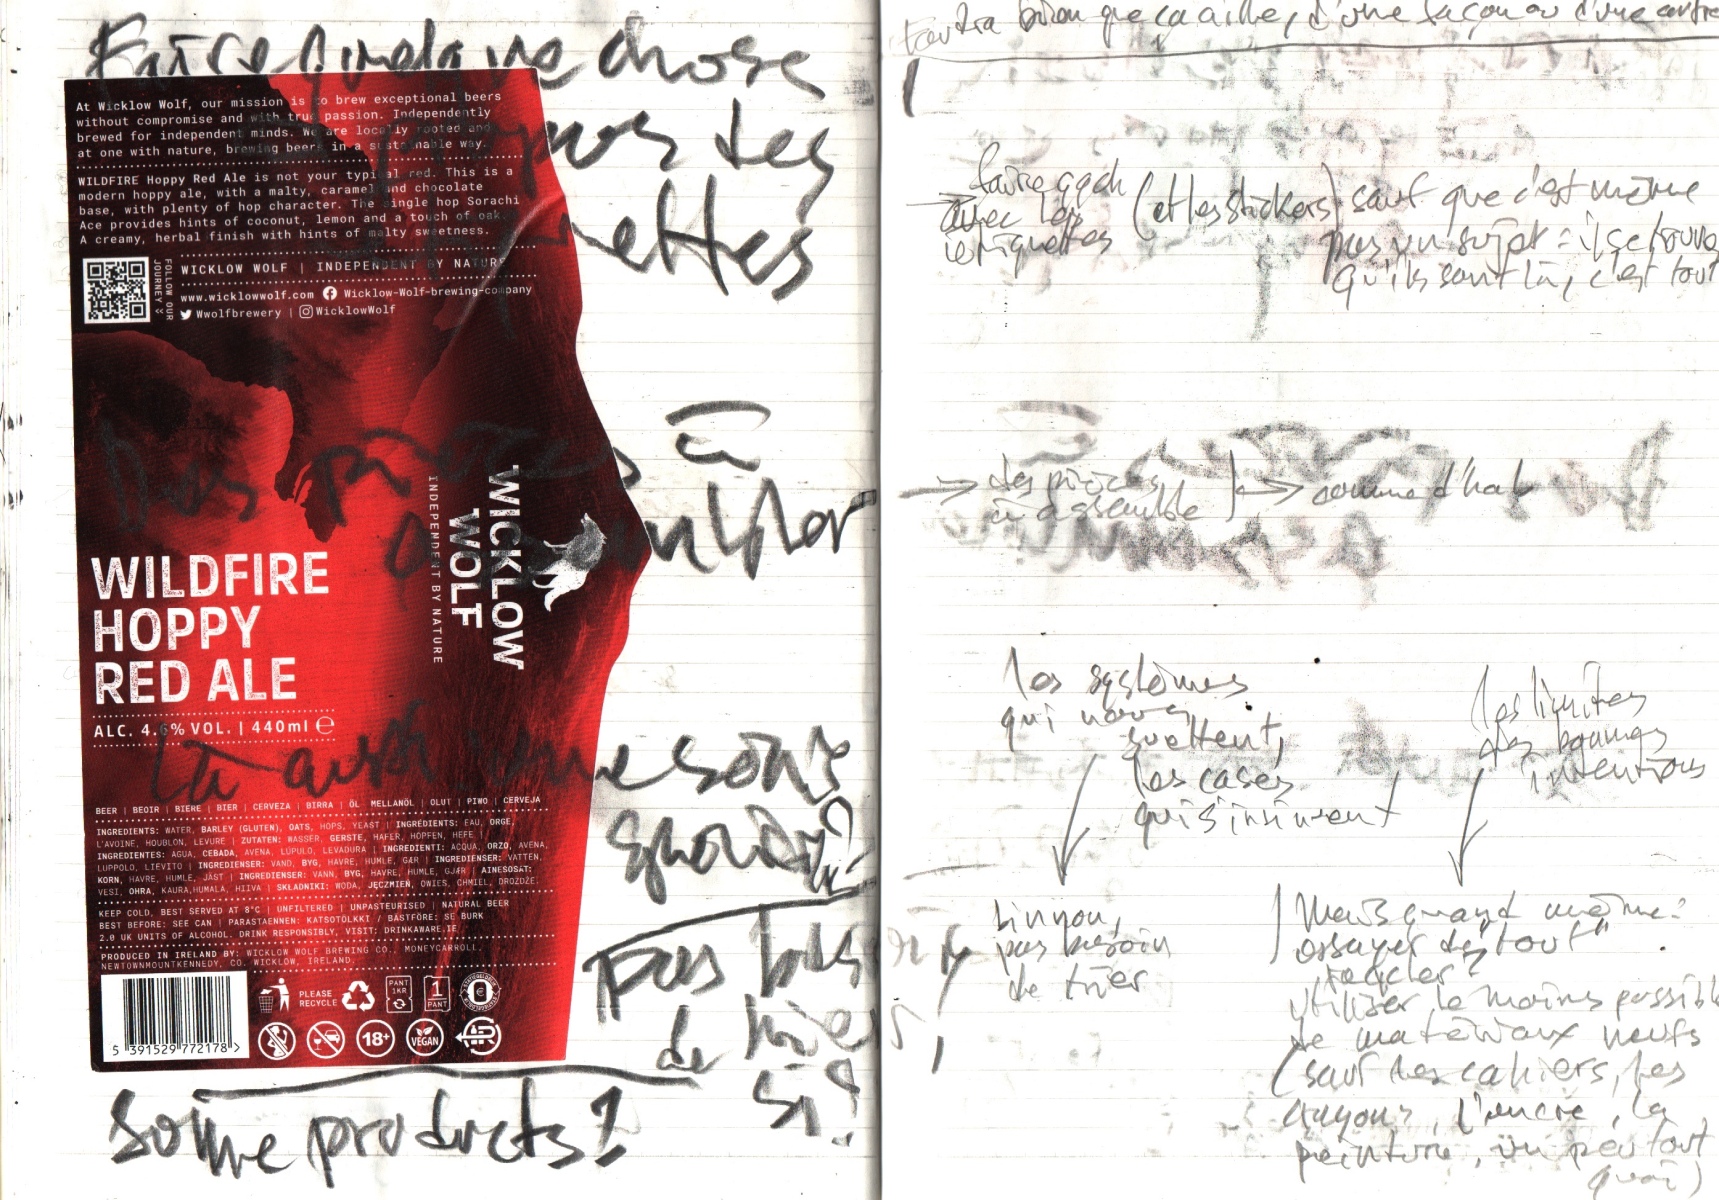 Faire quelque chose
à propos des
étiquettes
At Wicklow Wolf, our mission is to brew exceptional beers
without compromise and with true passion. Independently
brewed for independent minds. We are locally rooted and
at one with nature, brewing beers in a sustainable way.
WILDFIRE Hoppy Red Ale is not your typical red. This is a
modern hoppy ale, with a malty, caramel and chocolate
base, with plenty of hop character. The single hop Sorachi
Ace provides hints of coconut, lemon and a touch of oak.
A creamy, herbal finish with hints of malty sweetness.
FOLLOW OUR
JOURNEY
WICKLOW WOLF | INDEPENDENT BY NATURE
www.wicklowwolf.com Wicklow-Wolf-brewing-company
Wwolfbrewery | WicklowWolf
Des pièces à
assembler
WICKLOW
WOLF
INDEPENDENT BY NATURE
WILDFIRE
HOPPY
RED ALE
ALC. 4.6% VOL. | 440ml ℮
là aussi une sorte
BEER | BEOIR | BIERE | BIER | CERVEZA | BIRRA | ÖL MELLANÖL | OLUT | PIWO | CERVEJA
INGREDIENTS: WATER, BARLEY (GLUTEN), OATS, HOPS, YEAST | INGRÉDIENTS: EAU, ORGE,
L'AVOINE, HOUBLON, LEVURE | ZUTATEN: WASSER, GERSTE, HAFER, HOPFEN, HEFE |
INGREDIENTES: AGUA, CEBADA, AVENA, LÚPULO, LEVADURA | INGREDIENTI: ACQUA, ORZO, AVENA,
LUPPOLO, LIEVITO | INGREDIENSER: VAND, BYG, HAVRE, HUMLE, GÆR | INGREDIENSER: VATTEN,
KORN, HAVRE, HUMLE, JÄST | INGREDIENSER: VANN, BYG, HAVRE, HUMLE, GJÆR | AINESOSAT:
VESI, OHRA, KAURA, HUMALA, HIIVA | SKŁADNIKI: WODA, JĘCZMIEŃ, OWIES, CHMIEL, DROŻDŻE.
KEEP COLD, BEST SERVED AT 8°C | UNFILTERED | UNPASTEURISED | NATURAL BEER
BEST BEFORE: SEE CAN | PARASTAENNEN: KATSOTÖLKKT / BÄSTFÖRE: SE BURK
2.0 UK UNITS OF ALCOHOL. DRINK RESPONSIBLY, VISIT: DRINKAWARE.IE
PRODUCED IN IRELAND BY: WICKLOW WOLF BREWING CO., MONEYCARROLL,
NEWTOWNMOUNTKENNEDY, CO. WICKLOW, IRELAND.
PLEASE
RECYCLE
PANT
1KR
1
PANT
18+
VEGAN
5 391529 772178 >
pas besoin
de trier,
si?
some products?
faudra bien que ça aille, d'une façon ou d'une autre
→ faire qqch
avec les
étiquettes
(et les stickers)
sauf que c'est même
pas un sujet : il se trouve
qu'ils sont là, c'est tout
→ des pièces
à assemble
→ comme d'hab
les systèmes
qui nous
guettent,
les cases
qui s'insinuent
les limites
des bonnes
intentions
sinon,
pas besoin
de trier
Mais quand même :
essayer de "tout"
recycler?
utiliser le moins possible
de matériaux neufs
(sauf les cahiers, les
crayons, l'encre, la
peinture, un peu tout
quoi)